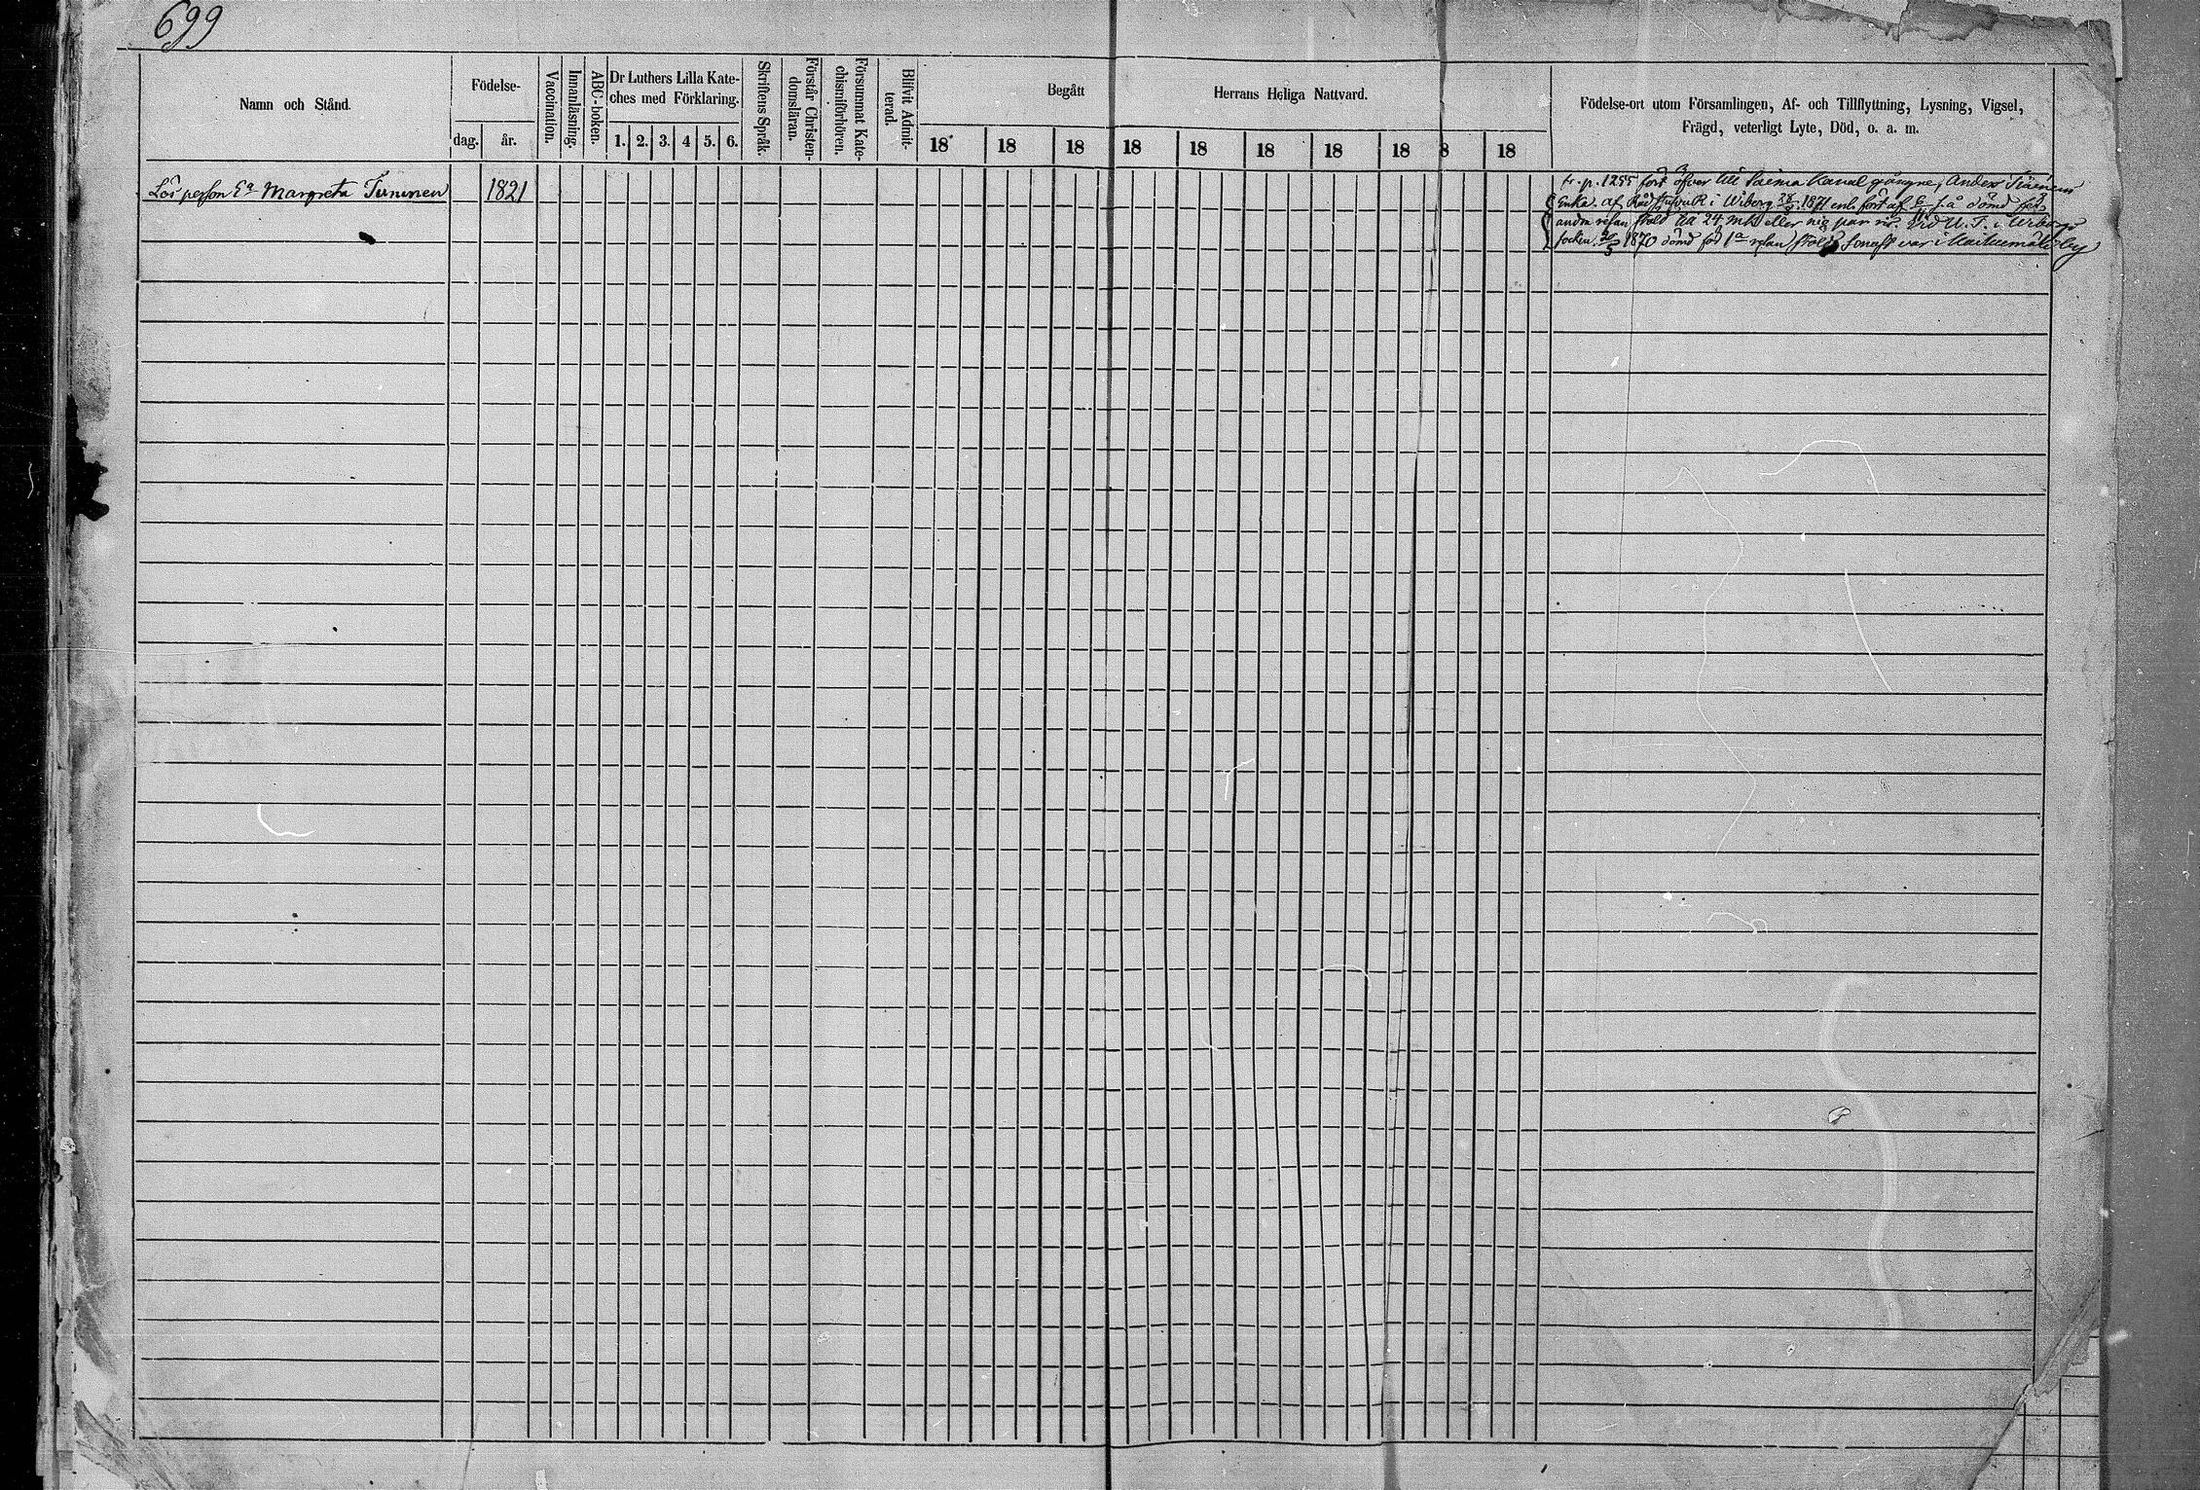 699
Namn och Stånd.
Födelse-
dag.
år.
Vaccination.
Innanläsning.
ABC-boken.
Dr Luthers Lilla Kate-
ches med Förklaring.
1. 2. 3. 4 5. 6.
Skriftens Språk.
Förstår Christen-
domsläran.
Försummat Kate-
chismiförhören.
Blifvit Admit-
terad.
Begått Herrans Heliga Nattvard.
18 18 18 18 18 18 18 18 8 18
Födelse-ort utom Församlingen, Af- och Tillflyttning, Lysning, Vigsel,
Frägd, veterligt Lyte, Död, o. a. m.
Lös person Ea Margreta 1821
fr. p. 1255 öfver till Saima Kanal Anders
Enka. af i Wiborg 1871 enl. af dömd för
andra stöld 24 eller vid U. T. i Wiborgs
socken. 1870 dömd för 1a stöld var i